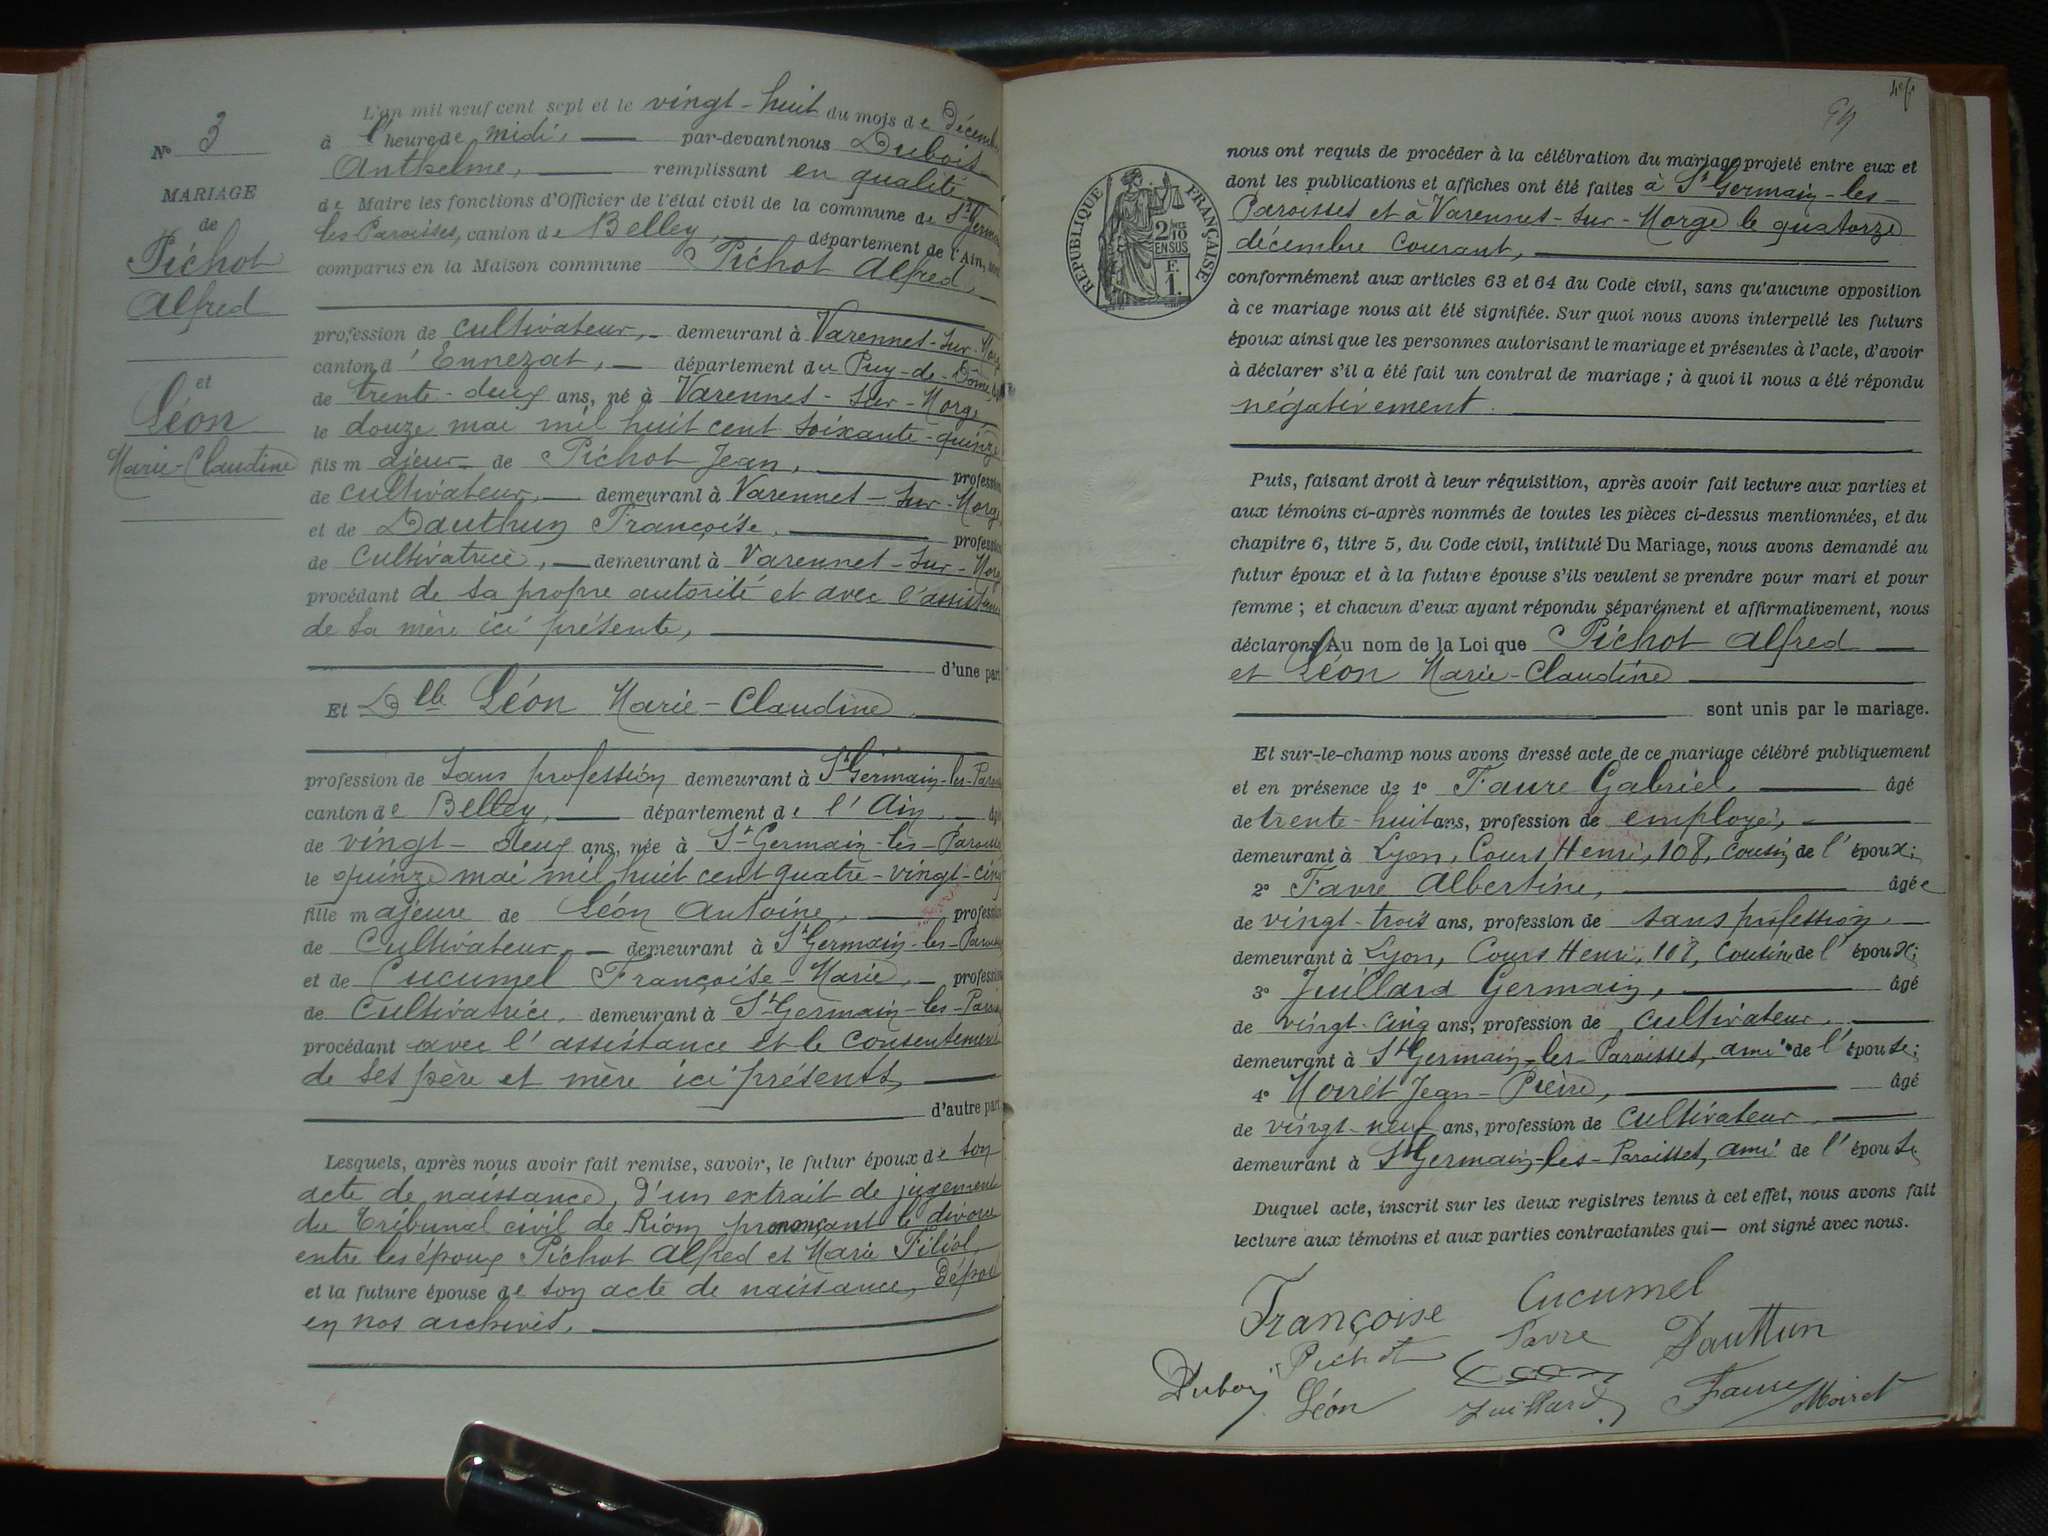 N° 3
MARIAGE
de
Pichot
Alfred
et
Léon
Marie-Claudine
L'an mil neuf cent sept et le vingt-huit du mois de décembre
à l'heure de midi, par-devant nous Dubois
Anthelme, remplissant en qualité
de Maire les fonctions d'Officier de l'état civil de la commune de St Germain
les Paroisses, canton de Belley, département de l'Ain,
comparus en la Maison commune Pichot Alfred,
profession de cultivateur, demeurant à Varennes-sur-Morge
canton d'Ennezat, département du Puy-de-Dôme, âgé
de trente-deux ans, né à Varennes-sur-Morge
le douze mai mil huit cent soixante-quinze
fils majeur de Pichot Jean, profession
de cultivateur, demeurant à Varennes-sur-Morge
et de Dauthun Françoise, profession
de cultivatrice, demeurant à Varennes-sur-Morge
procédant de sa propre autorité et avec l'assistance
de sa mère ici présente,
d'une part
Et Dlle Léon Marie-Claudine
profession de sans profession demeurant à St Germain-les-Paroisses
canton de Belley, département de l'Ain, âgée
de vingt-deux ans, née à St Germain-les-Paroisses
le quinze mai mil huit cent quatre-vingt-cinq
fille majeure de Léon Antoine, profession
de cultivateur, demeurant à St Germain-les-Paroisses
et de Cucumel Françoise-Marie, profession
de cultivatrice, demeurant à St Germain-les-Paroisses
procédant avec l'assistance et le consentement
de ses père et mère ici présents,
d'autre part
Lesquels, après nous avoir fait remise, savoir, le futur époux de son
acte de naissance, d'un extrait de jugement
du Tribunal civil de Riom prononçant le divorce
entre les époux Pichot Alfred et Marie Filiol,
et la future épouse de son acte de naissance, déposé
en nos archives.
RÉPUBLIQUE FRANÇAISE
2/10
EN SUS
F.
1.
nous ont requis de procéder à la célébration du mariage projeté entre eux et
dont les publications et affiches ont été faites à St Germain-les-
Paroisses et à Varennes-sur-Morge le quatorze
décembre courant,
conformément aux articles 63 et 64 du Code civil, sans qu'aucune opposition
à ce mariage nous ait été signifiée. Sur quoi nous avons interpellé les futurs
époux ainsi que les personnes autorisant le mariage et présentes à l'acte, d'avoir
à déclarer s'il a été fait un contrat de mariage ; à quoi il nous a été répondu
négativement.
Puis, faisant droit à leur réquisition, après avoir fait lecture aux parties et
aux témoins ci-après nommés de toutes les pièces ci-dessus mentionnées, et du
chapitre 6, titre 5, du Code civil, intitulé Du Mariage, nous avons demandé au
futur époux et à la future épouse s'ils veulent se prendre pour mari et pour
femme ; et chacun d'eux ayant répondu séparément et affirmativement, nous
déclarons Au nom de la Loi que Pichot Alfred
et Léon Marie-Claudine
sont unis par le mariage.
Et sur-le-champ nous avons dressé acte de ce mariage célébré publiquement
et en présence de 1° Faure Gabriel, âgé
de trente-huit ans, profession de employé,
demeurant à Lyon, Cours Henri, 108, cousin de l'époux;
2° Favre Albertine, âgée
de vingt-trois ans, profession de sans profession,
demeurant à Lyon, Cours Henri, 108, cousine de l'époux;
3° Juillard Germain, âgé
de vingt-cinq ans, profession de cultivateur,
demeurant à St Germain-les-Paroisses, ami de l'épouse;
4° Moiret Jean-Pierre, âgé
de vingt-neuf ans, profession de cultivateur
demeurant à St Germain-les-Paroisses, ami de l'épouse
Duquel acte, inscrit sur les deux registres tenus à cet effet, nous avons fait
lecture aux témoins et aux parties contractantes qui— ont signé avec nous.
Françoise Cucumel
Pichot Favre Dauthun
Dubois Léon Juillard Faure Moiret